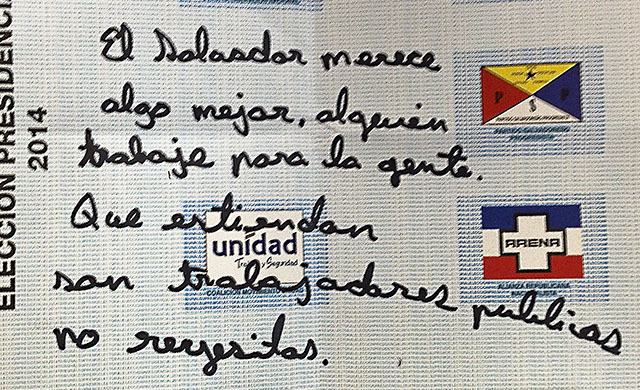 ELECCIÓN PRESIDENCI
2014
El Salvador merece
algo mejor, alguien
trabaje para la gente.
Que entiendan
son trabajadores publicos
no reyesitos.
P S P
PARTIDO SALVADOREÑO
unidad
Tra y Seguridad
COALICIÓN MOVIMIENTO
ARENA
ALIANZA REPUBLICANA